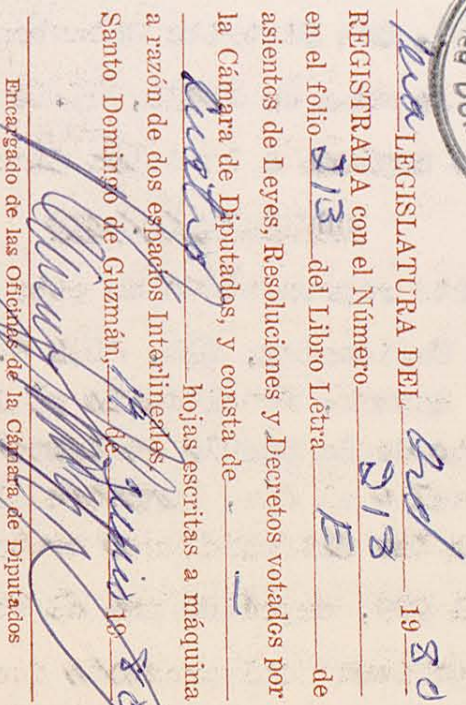 1ra LEGISLATURA DEL Ord 1980
REGISTRADA con el Número 218
en el folio 213 del Libro Letra E de
asientos de Leyes, Resoluciones y Decretos votados por
la Cámara de Diputados, y consta de
cuatro hojas escritas a máquina
a razón de dos espacios Interlineales.
Santo Domingo de Guzmán, de Junio 1980
Encargado de las Oficinas de la Cámara de Diputados